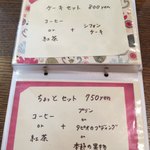 ケーキセット 800yen
コーヒー
or + シフォン
紅茶 ケーキ
ちょっとセット 750yen
コーヒー プリン
or + or
紅茶 タピオカココナッツプリン
or
季節の果物